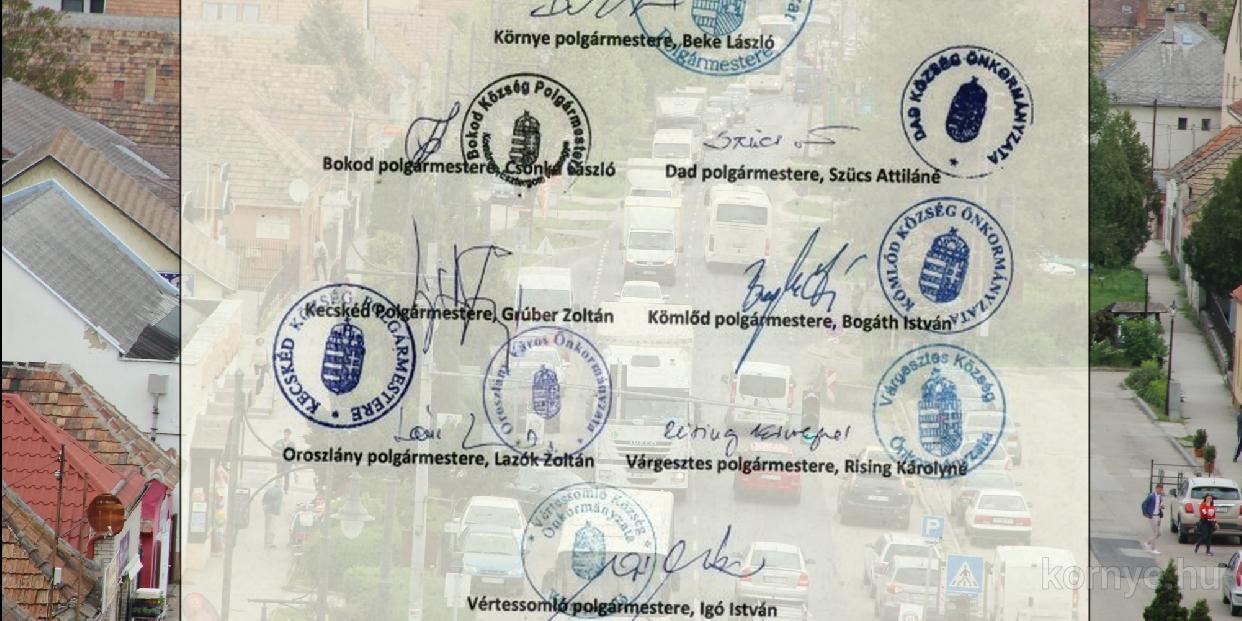 Környe polgármestere, Beke László
Polgármestere
Bokod Község Polgármestere
Bokod polgármestere, Csonka László
DAD KÖZSÉG ÖNKORMÁNYZATA
Szücs
Dad polgármestere, Szücs Attiláné
Kecskéd Polgármestere, Grúber Zoltán
KECSKÉD KÖZSÉG POLGÁRMESTERE
KÖMLŐD KÖZSÉG ÖNKORMÁNYZATA
Kömlőd polgármestere, Bogáth István
Oroszlány Város Önkormányzata
Oroszlány polgármestere, Lazók Zoltán
Várgesztes Község
Önkormányzata
Rising Károlyné
Várgesztes polgármestere, Rising Károlyné
Vértessomló Község
Önkormányzata
Vértessomló polgármestere, Igó István
P
kornye.hu